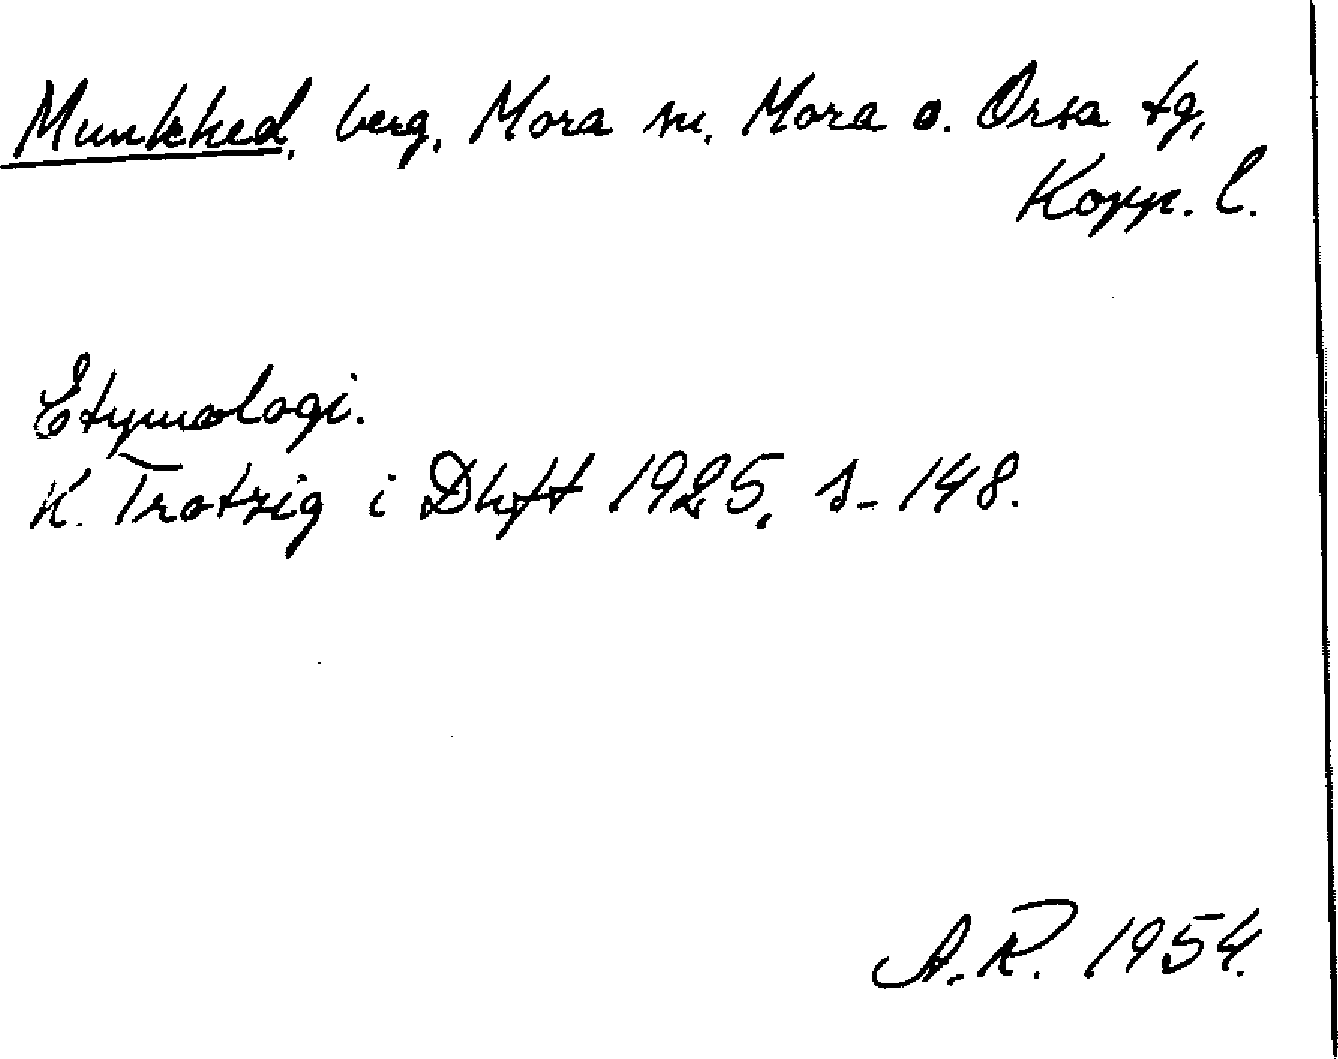 Munkhed, berg, Mora sn, Mora o. Orsa tg,
Kopp. l.
Etymologi.
K. Trotzig i Dhft 1925, s. 148.
A.R. 1954.